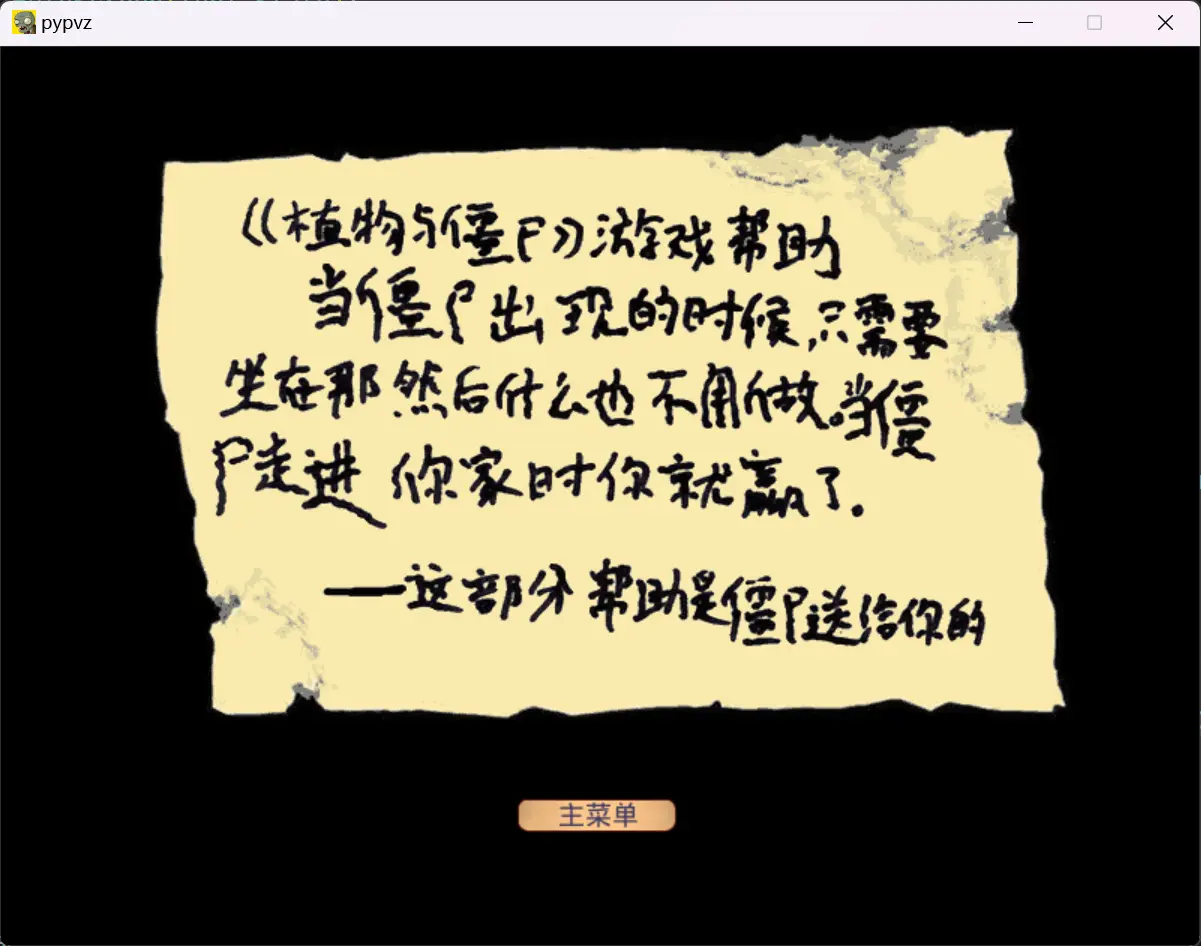 pypvz
《植物与僵尸》游戏帮助
当僵尸出现的时候,只需要
坐在那然后什么也不用做。当僵
尸走进你家时你就赢了.
——这部分帮助是僵尸送给你的
主菜单